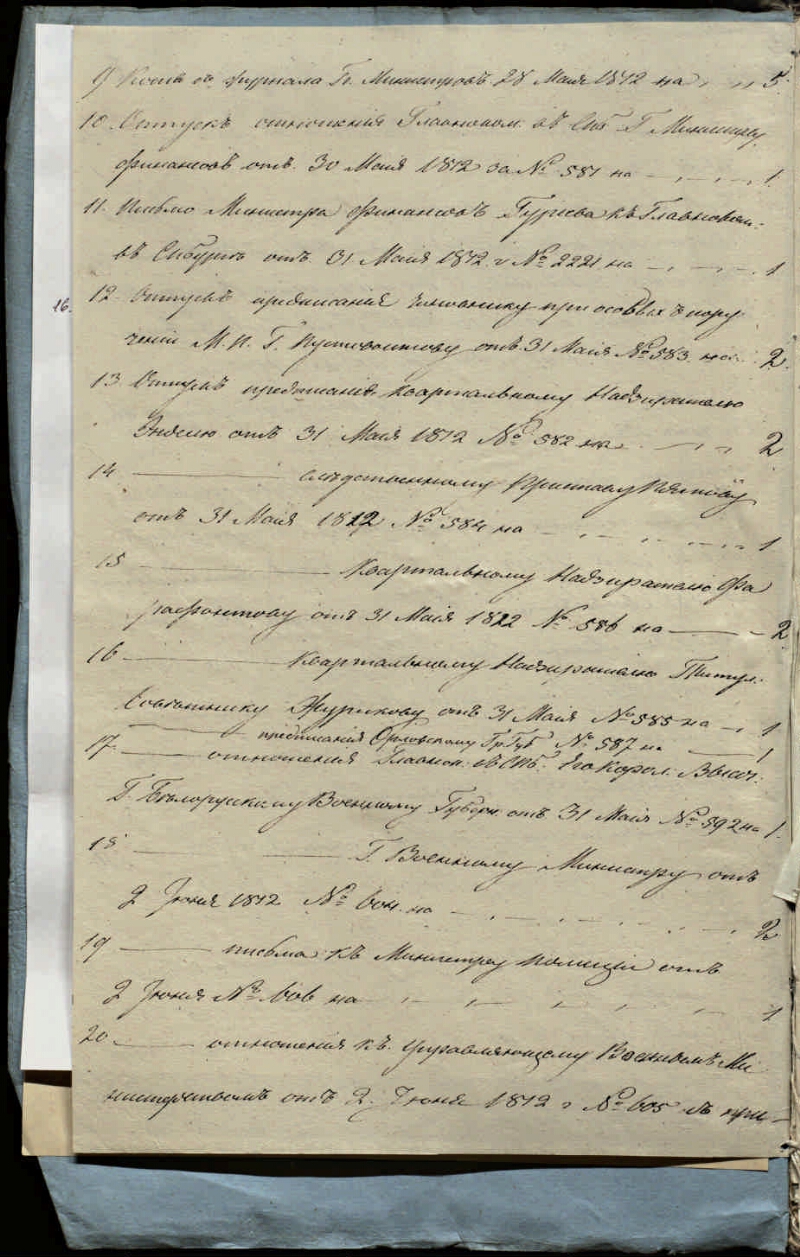 9 Копія съ журнала Гг. Министровъ 28 Маія 1812 на 5.
10 Отпускъ отношенія Главноком: въ Спб Г Министру
финансовъ отъ 30 Маія 1812 за № 581 на 1.
11. Письмо Министра финансовъ Гурьева къ Главноком-
въ С.Пбургѣ отъ 31 Маія 1812. г № 2221 на 1
16.
12. Отпускъ предписанія чиновнику при особыхъ пору
ченій М. П. Г. отъ 31 Маія № 583 на 2.
13 Отпускъ предписанія Квартальному Надзирателю
отъ 31 Маія 1812 № 582 на 2
14 слѣдственному Приставу
отъ 31 Маія 1812 № 584 на 1
15 Квартальному Надзирателю Фа
рафонтову отъ 31 Маія 1812 № 586 на 2
16 Квартальному Надзирателю Титул:
Совѣтнику отъ 31 Маія № 585 на 1
предписанія Орловскому Гр: Губ № 587 на 1
17. отношенія Главнок: въ Спб: Его Корол: Высоч:
Г. Бѣлорускому Военному Губерн: отъ 31 Маія № 592 на 1.
18 Г Военному Министру отъ
2 Іюня 1812 № 604. на 2
19 письма къ Министру Полиціи отъ
2 Іюня № 606 на 1
20 отношенія къ Управляющему Военнымъ Ми
нистерствомъ отъ 2. Іюня 1812 г № 605 съ при-